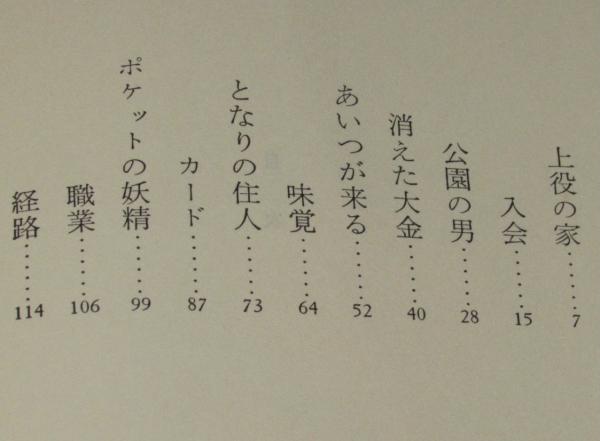 上役の家……7
入会……15
公園の男……28
消えた大金……40
あいつが来る……52
味覚……64
となりの住人……73
カード……87
ポケットの妖精……99
職業……106
経路……114